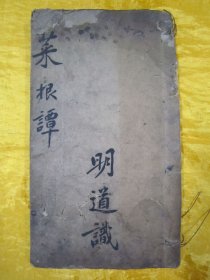 菜根譚
明道識